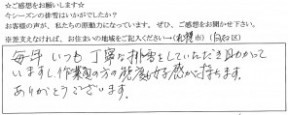 ☆ご感想をお願いします☆
今シーズンの排雪はいかがでしたか？
お客様の声が、私たちの原動力になっています。ぜひ、ご感想をお聞かせ下さい。
※差支えなければ、お住まいの地域をご記入ください→(札幌市)(白石区)
毎年 いつも 丁寧な排雪をしていただき助かって
いますし、作業員の方の態度も好感が持てます。
ありがとうございます。